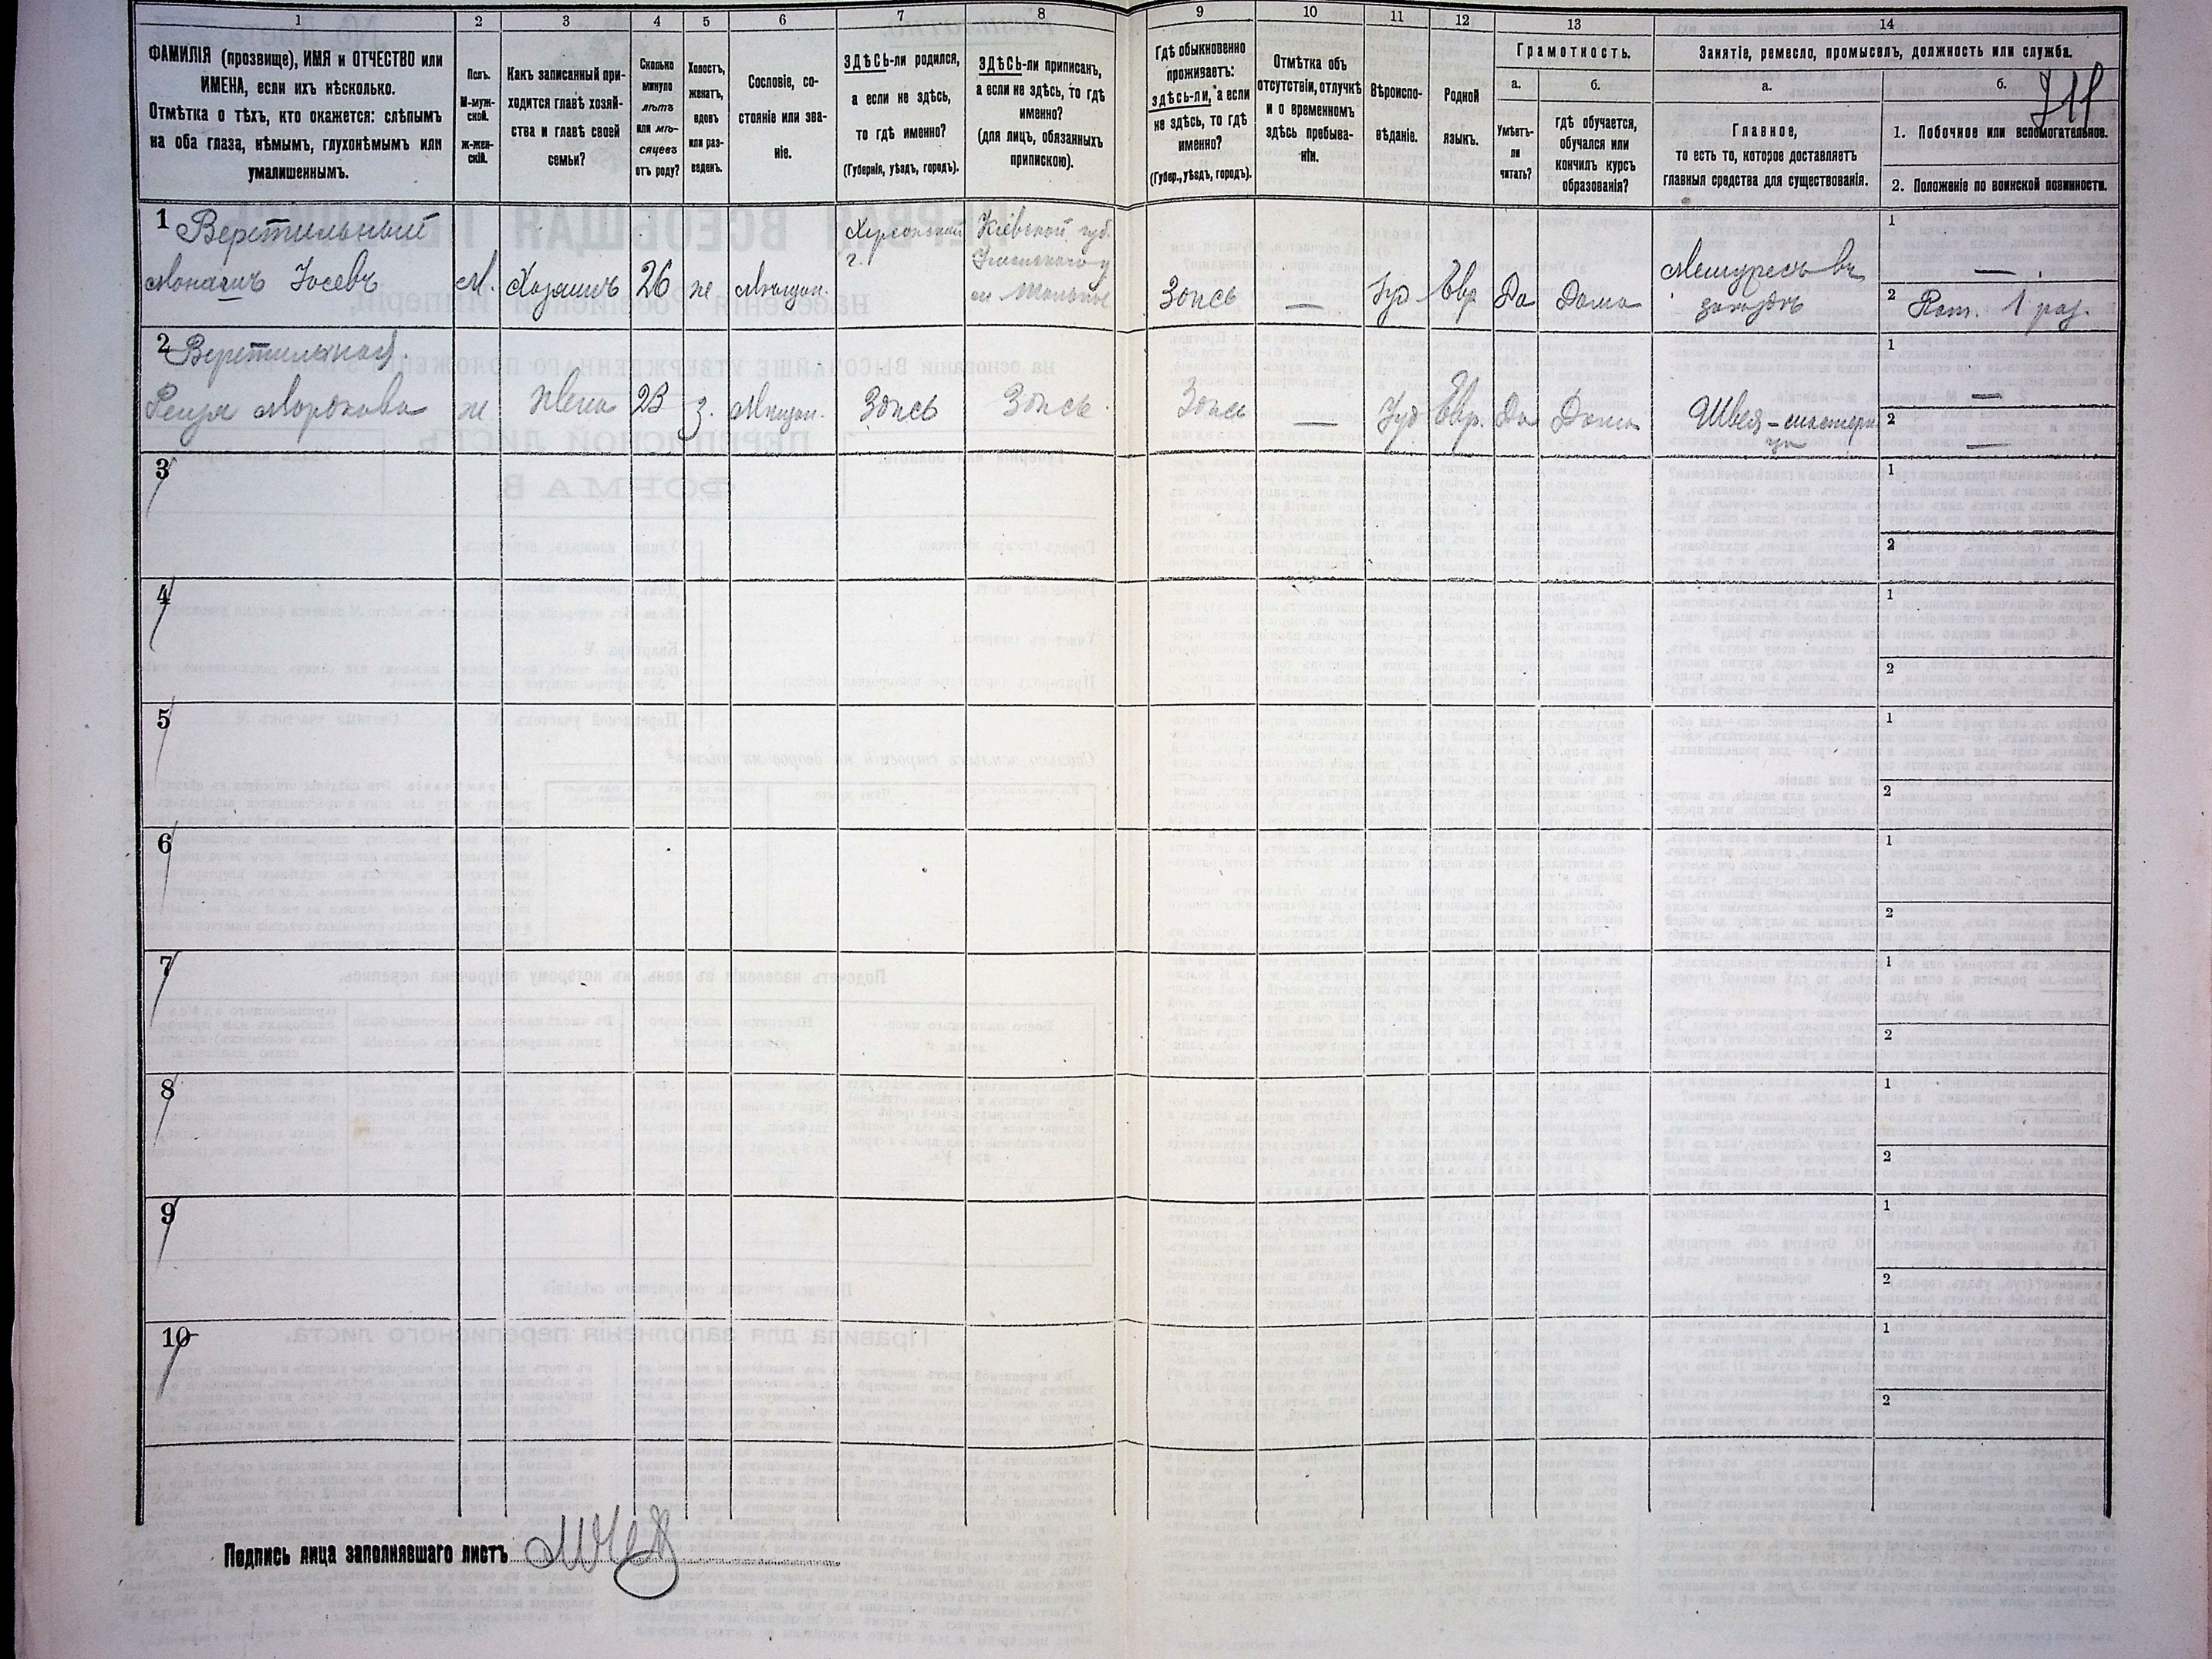 1 2 3 4 5 6 7 8 9 10 11 12 13 14
ФАМИЛІЯ (прозвище), ИМЯ и ОТЧЕСТВО или
ИМЕНА, если ихъ нѣсколько.
Отмѣтка о тѣхъ, кто окажется: слѣпымъ
на оба глаза, нѣмымъ, глухонѣмымъ или
умалишеннымъ.
Полъ.
М-муж-
ской.
ж-жен-
скій.
Какъ записанный при-
ходится главѣ хозяй-
ства и главѣ своей
семьи?
Сколько
минуло
лѣтъ
или мѣ-
сяцевъ
отъ роду?
Холостъ,
женатъ,
вдовъ
или раз-
веденъ.
Сословіе, со-
стояніе или зва-
ніе.
ЗДѢСЬ-ли родился,
а если не здѣсь,
то гдѣ именно?
(Губернія, уѣздъ, городъ).
ЗДѢСЬ-ли приписанъ,
а если не здѣсь, то гдѣ
именно?
(для лицъ, обязанныхъ
припискою).
Гдѣ обыкновенно
проживаетъ:
здѣсь-ли, а если
не здѣсь, то гдѣ
именно?
(Губер., уѣздъ, городъ).
Отмѣтка объ
отсутствіи, отлучкѣ
и о временномъ
здѣсь пребыва-
ніи.
Вѣроиспо-
вѣданіе.
Родной
языкъ.
Грамотность.
а.
Умѣетъ-
ли
читать?
б.
гдѣ обучается,
обучался или
кончилъ курсъ
образованія?
Занятіе, ремесло, промыселъ, должность или служба.
а.
Главное,
то есть то, которое доставляетъ
главныя средства для существованія.
б.
1. Побочное или вспомогательное.
2. Положеніе по воинской повинности.
1 Веретильный
Іосевъ
М. Хозяинъ 26 же Мѣщан.
Херсонской
г.
Кіевской губ.
Здѣсь — Іуд Евр Да Дома
1 —
2 Рат. 1 раз.
2 Веретильная
Мордкова
ж Жена 23 з. Мѣщан. Здѣсь Здѣсь Здѣсь — Іуд Евр. Да Дома Швея-мастери
ца
1 —
2 —
3 1
2
4 1
2
5 1
2
6 1
2
7 1
2
8 1
2
9 1
2
10 1
2
Подпись лица заполнявшаго листъ